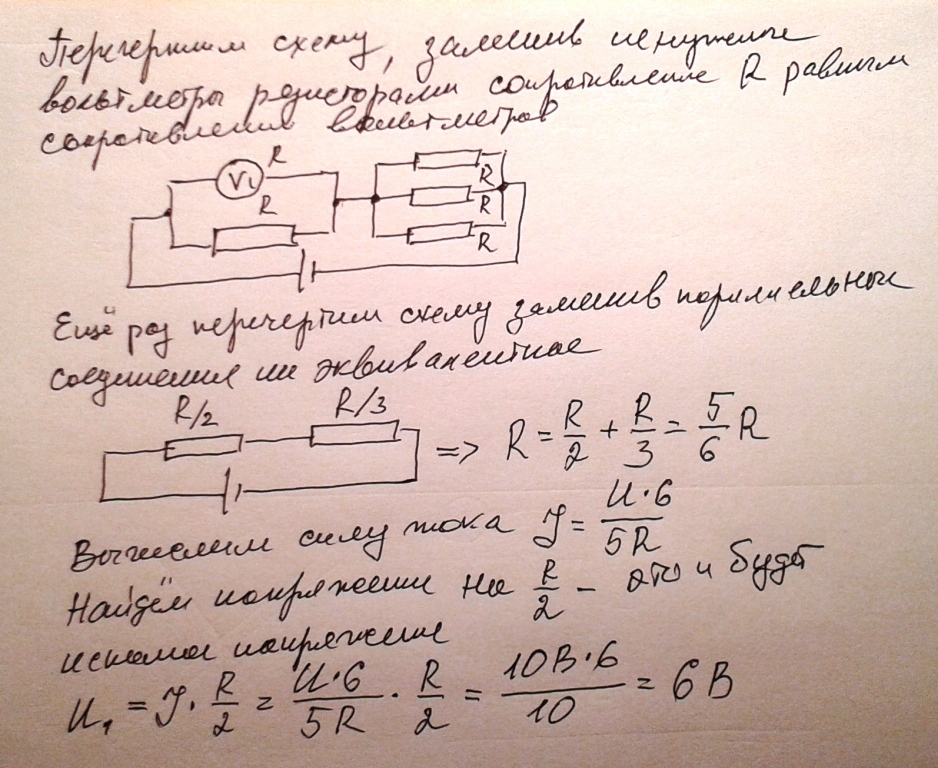 Перечертим схему, заменив ненужные
вольтметры резисторами сопротивление R равным
сопротивлении вольтметров
R
V₁
R
R
R
R
Ещё раз перечертим схему заменив параллельные
соединения на эквивалентное
R/2 R/3
=> R = R/2 + R/3 = 5/6 R
Вычислим силу тока J = U·6/5R
Найдём напряжении на R/2 - это и будет
искомое напряжение
U₁ = J · R/2 = U·6/5R · R/2 = 10В·6/10 = 6В